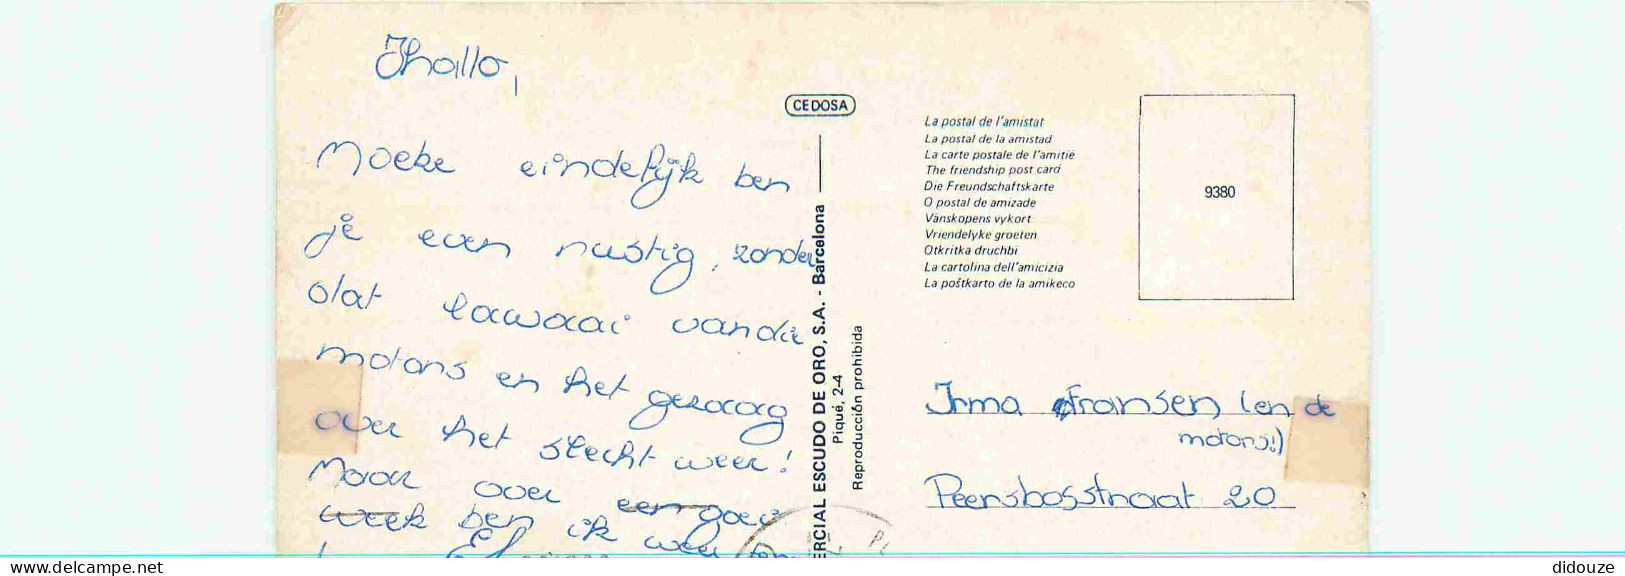 Jhallo,
Moeke eindelijk ben
je even rustig, zonder
dat lawaai van die
motors en het gezaag
over het slecht weer!
Maar over een goei
week ben ik weer
CEDOSA
ERCIAL ESCUDO DE ORO, S.A. - Barcelona
Piqué, 2-4
Reproducción prohibida
La postal de l'amistat
La postal de la amistad
La carte postale de l'amitié
The friendship post card
Die Freundschaftskarte
O postal de amizade
Vänskopens vykort
Vriendelyke groeten
Otkritka druchbi
La cartolina dell'amicizia
La poŝtkarto de la amikeco
9380
Irma Fransen (en de
motors!)
Peersbosstraat 20
delcampe.net
didouze